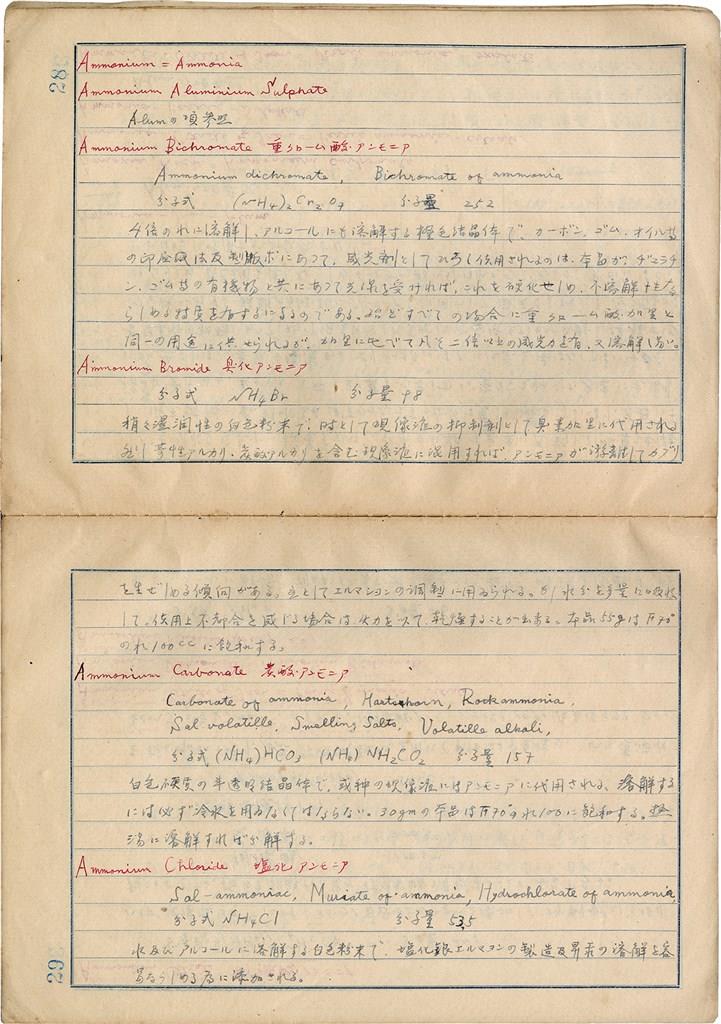 28
Ammonium = Ammonia
Ammonium Aluminium Sulphate
Alumの項参照
Ammonium Bichromate 重クローム酸アンモニア
Ammonium dichromate, Bichromate of ammonia
分子式 (NH4)2Cr2O7 分子量 252
4倍の水に溶解し、アルコールにも溶解する橙色結晶体で、カーボン、ゴム、オイル等
の印画法及製版術にあつて、感光剤として広く使用されるのは、本品がゼラチ
ン、ゴム等の有機物と共にあつて光線を受ければ、これを硬化せしめ、不溶解性な
らしめる特質を有するによるのである。殆どすべての場合に重クローム酸加里と
同一の用途に供せられるが、加里に比べて凡そ二倍以上の感光力を有、又溶解し易い。
Ammonium Bromide 臭化アンモニア
分子式 NH4Br 分子量 98
稍々湿潤性の白色粉末で、時として現像液の抑制剤として臭素加里に代用される
苛性アルカリ、炭酸アルカリを含む現像液に混用すれば、アンモニアが游離してカブリ
を生ぜしめる傾向がある。主としてエルマションの調製に用ゐられる。水分を多量に吸収
して、使用上不都合を感じる場合は、火力を以て乾燥することが出来る。本品55gは70°
の水100ccに飽和する。
Ammonium Carbonate 炭酸アンモニア
Carbonate of ammonia, Hartshorn, Rock ammonia,
Sal volatille, Smelling Salts, Volatille alkali,
分子式 (NH4)HCO3 (NH4)NH2CO2 分子量 157
白色硬質の半透明結晶体で、或種の現像液にはアンモニアに代用される、溶解する
には必ず冷水を用ゐなくてはならない。30gmの本品は70°の水100に飽和する。熱
湯に溶解すれば分解する。
Ammonium Chloride 塩化アンモニア
Sal-ammoniac, Muriate of ammonia, Hydrochlorate of ammonia,
分子式 NH4Cl 分子量 53.5
水及びアルコールに溶解する白色粉末で、塩化銀エルマションの製造及昇汞の溶解を容
易ならしめる為に添加される。
29